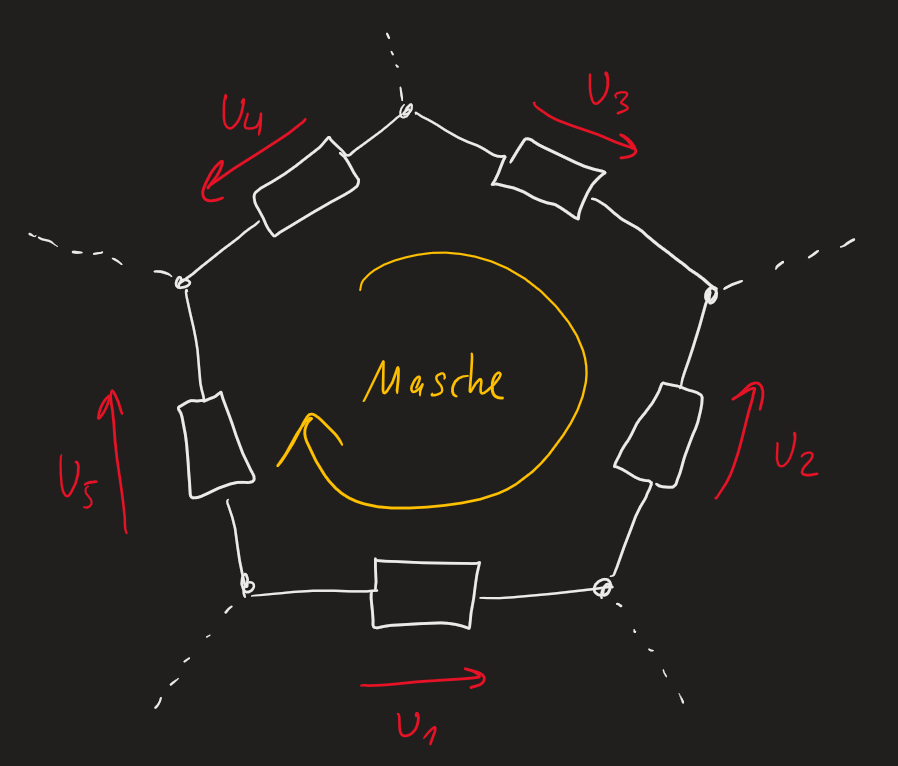 U4
U3
Masche
U5
U2
U1